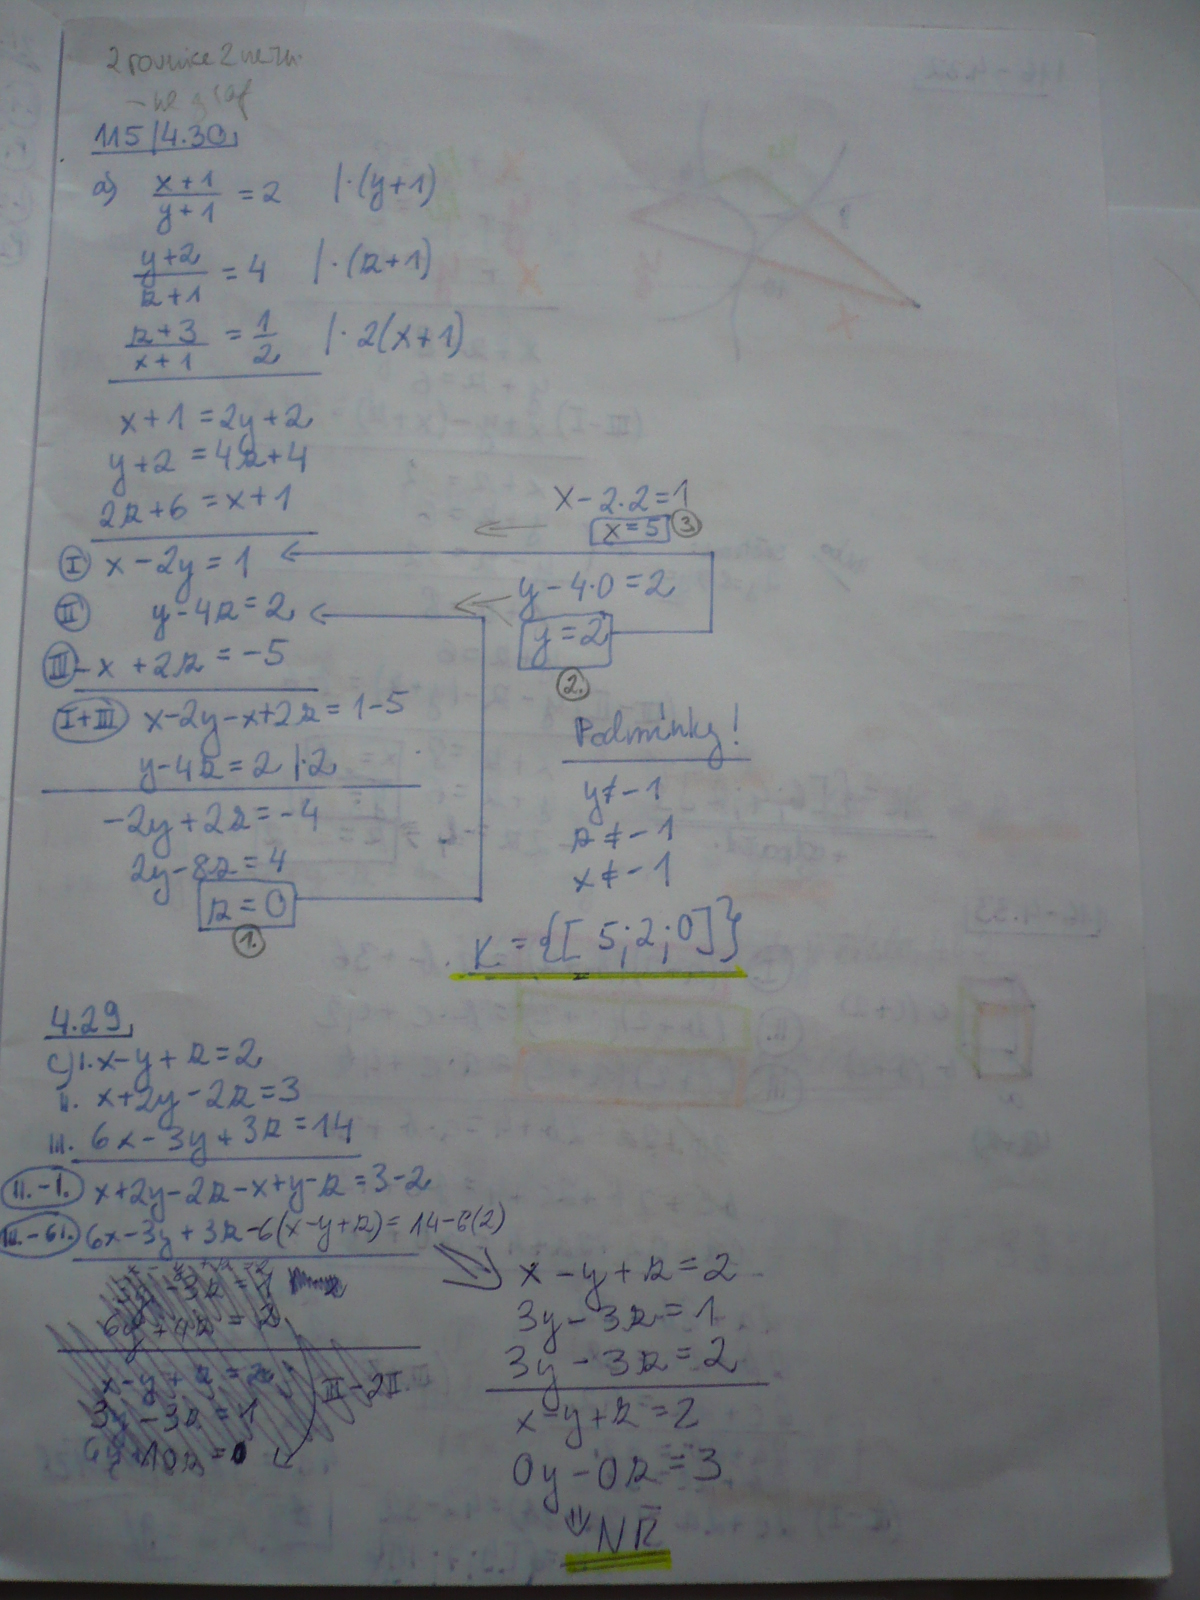 2 rovnice 2 nezn.
115/4.30
a) x+1/y+1 = 2 |·(y+1)
y+2/z+1 = 4 |·(z+1)
z+3/x+1 = 1/2 |·2(x+1)
x+1 = 2y+2
y+2 = 4z+4
2z+6 = x+1
I x-2y = 1
II y-4z = 2
III -x+2z = -5
I+III x-2y-x+2z = 1-5
y-4z = 2 |·2
-2y+2z = -4
2y-8z = 4
z = 0
1.
x-2·2 = 1
x = 5 3.
y-4·0 = 2
y = 2
2.
Podmínky!
y ≠ -1
z ≠ -1
x ≠ -1
K = {[5;2;0]}
4.29
c) I. x-y+z = 2
II. x+2y-2z = 3
III. 6x-3y+3z = 14
II.-I. x+2y-2z-x+y-z = 3-2
III.-6I. 6x-3y+3z-6(x-y+z) = 14-6(2)
x-y+z = 2
3y-3z = 1
x-y+z = 2
3y-3z = 1
III-2II
x-y+z = 2
3y-3z = 1
3y-3z = 2
x-y+z = 2
0y-0z = 3
⇓
NŘ